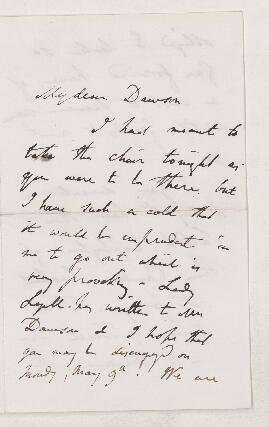 My dear Dawson
I had meant to
take the chair tonight as
you were to be there, but
I have such a cold that
it would be imprudent in
me to go out which is
very provoking - Lady
Lyell has written to Mrs
Dawson & I hope that
you may be disengaged on
Monday, May 9th! We are